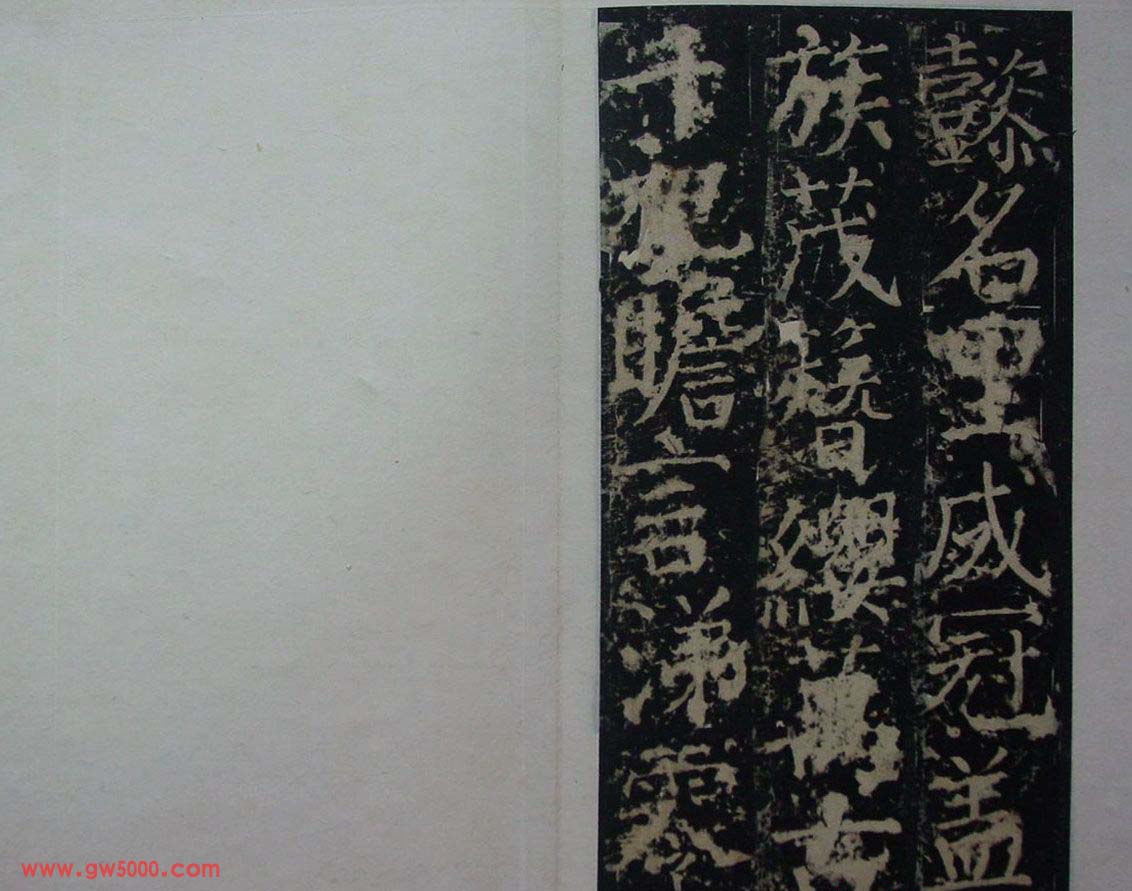 懿名里威冠盖
族茂簪纓萬古
千祀瞻言涕零
www.gw5000.com